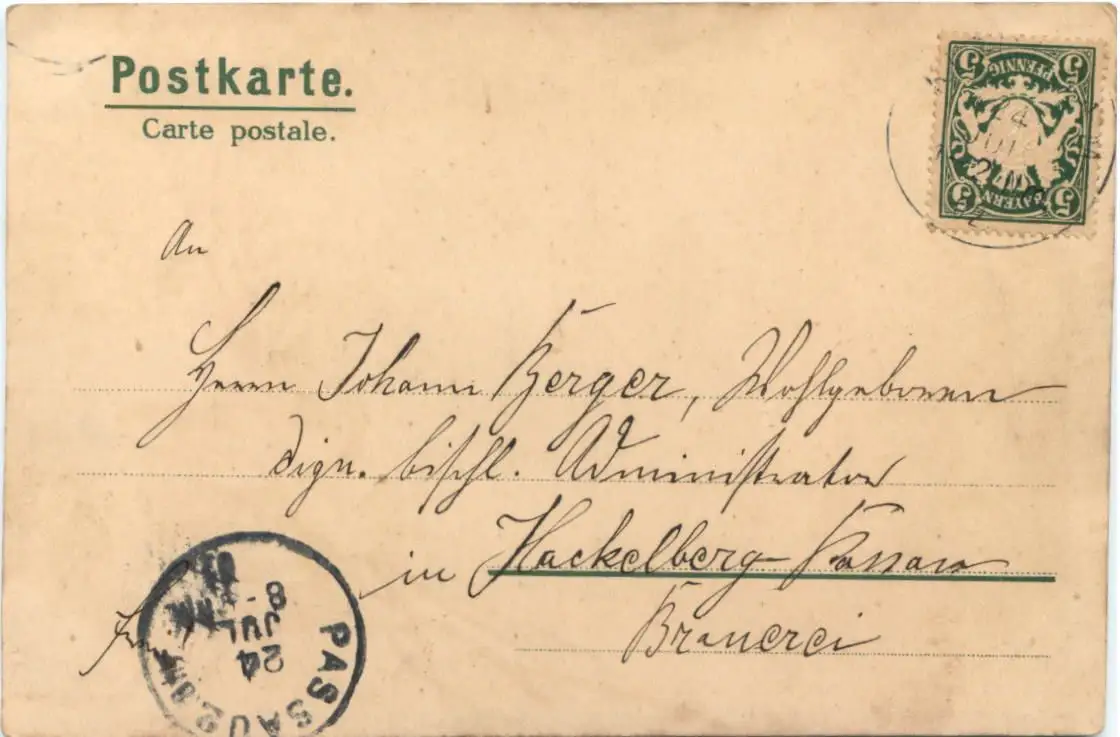 Postkarte.
Carte postale.
5 PFENNIG 5
5 BAYERN 5
24
JUL
2
An
Herrn Johann Berger, Wohlgeboren
bischl. Administrator
in Hackelberg-Passau
Brauerei
PASSAU 2
24
JUL
8-